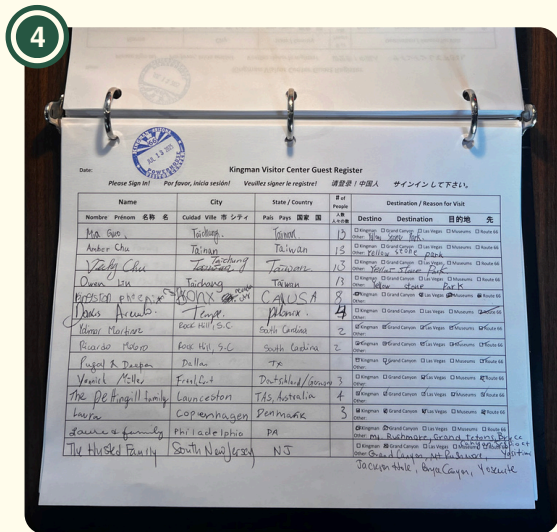 4
JUL 13 2025
Date:
Kingman Visitor Center Guest Register
Please Sign In! Por favor, inicia sesión! Veuillez signer le registre! 请登录！中国人 サインイン して下さい。
Name City State / Country # of People Destination / Reason for Visit
Nombre Prénom 名称 名 Cuidad Ville 市 シティ Pais Pays 国家 国 人数 人々の数 Destino Destination 目的地 先
Guo Taichung Taiwan 13 Kingman Grand Canyon Las Vegas Museums Route 66
Other: Yellow Stone Park
Amber Chu Tainan Taiwan 13 Kingman Grand Canyon Las Vegas Museums Route 66
Other: Yellow stone park
Vicky Chu Taichung Taiwan 13 Kingman Grand Canyon Las Vegas Museums Route 66
Other: Yellow Stone Park
Owen Lin Taichung Taiwan 13 Kingman Grand Canyon Las Vegas Museums Route 66
Other: Yellow stone Park
USA 8 Kingman Grand Canyon Las Vegas Museums Route 66
Other:
Tempe 4 Kingman Grand Canyon Las Vegas Museums Route 66
Other:
Martinez Rock Hill, S.C. South Carolina 2 Kingman Grand Canyon Las Vegas Museums Route 66
Other:
Ricardo Rock Hill, S.C. South Carolina 2 Kingman Grand Canyon Las Vegas Museums Route 66
Other:
& Dallas TX Kingman Grand Canyon Las Vegas Museums Route 66
Other:
Yannick Miller Frankfurt Deutschland/Germany 3 Kingman Grand Canyon Las Vegas Museums Route 66
Other:
The Pettingill family Launceston TAS, Australia 4 Kingman Grand Canyon Las Vegas Museums Route 66
Other:
Laura Copenhagen Denmark 3 Kingman Grand Canyon Las Vegas Museums Route 66
Other:
& family Philadelphia PA Kingman Grand Canyon Las Vegas Museums Route 66
Other: Mt. Rushmore, Grand Tetons, Bryce Canyon
The Husted Family South New Jersey NJ Kingman Grand Canyon Las Vegas Museums Route 66
Other: Grand Canyon, Mt Rushmore,
Jackson Hole, Bryce Canyon, Yosemite